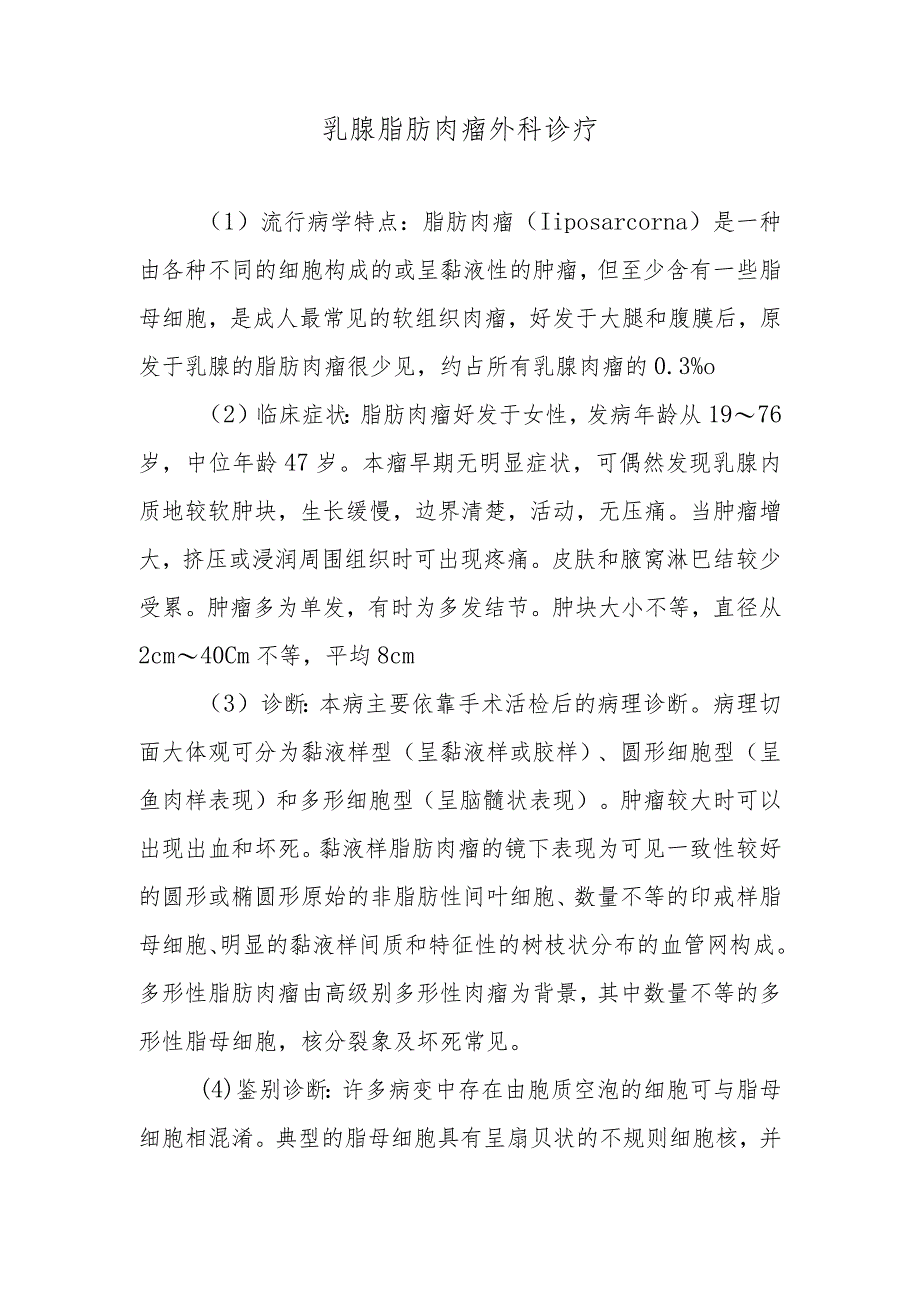 乳腺脂肪肉瘤外科诊疗
（1）流行病学特点：脂肪肉瘤（Iiposarcorna）是一种
由各种不同的细胞构成的或呈黏液性的肿瘤，但至少含有一些脂
母细胞，是成人最常见的软组织肉瘤，好发于大腿和腹膜后，原
发于乳腺的脂肪肉瘤很少见，约占所有乳腺肉瘤的0.3‰o
（2）临床症状：脂肪肉瘤好发于女性，发病年龄从19～76
岁，中位年龄47岁。本瘤早期无明显症状，可偶然发现乳腺内
质地较软肿块，生长缓慢，边界清楚，活动，无压痛。当肿瘤增
大，挤压或浸润周围组织时可出现疼痛。皮肤和腋窝淋巴结较少
受累。肿瘤多为单发，有时为多发结节。肿块大小不等，直径从
2cm～40Cm不等，平均8cm
（3）诊断：本病主要依靠手术活检后的病理诊断。病理切
面大体观可分为黏液样型（呈黏液样或胶样）、圆形细胞型（呈
鱼肉样表现）和多形细胞型（呈脑髓状表现）。肿瘤较大时可以
出现出血和坏死。黏液样脂肪肉瘤的镜下表现为可见一致性较好
的圆形或椭圆形原始的非脂肪性间叶细胞、数量不等的印戒样脂
母细胞、明显的黏液样间质和特征性的树枝状分布的血管网构成。
多形性脂肪肉瘤由高级别多形性肉瘤为背景，其中数量不等的多
形性脂母细胞，核分裂象及坏死常见。
(4)鉴别诊断：许多病变中存在由胞质空泡的细胞可与脂母
细胞相混淆。典型的脂母细胞具有呈扇贝状的不规则细胞核，并